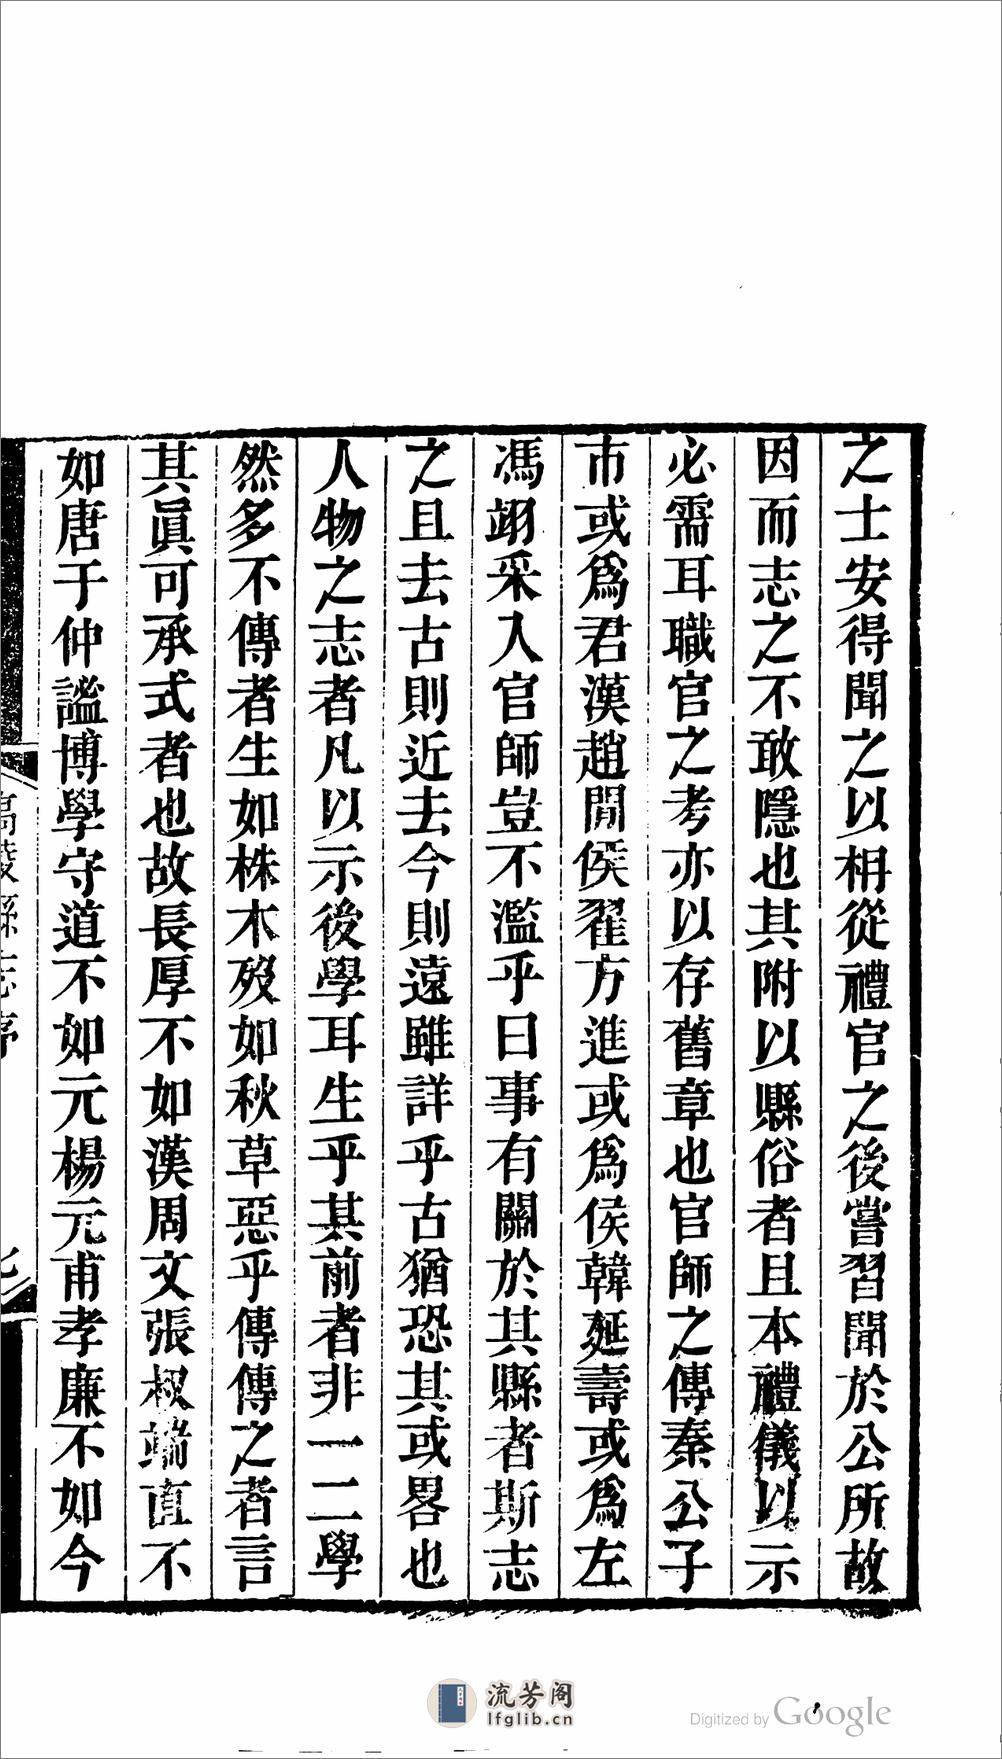 之士安得聞之以相從禮官之後嘗習聞於公所故
因而志之不敢隱也其附以縣俗者且本禮儀以示
必需耳職官之考亦以存舊章也官師之傳秦公子
市或爲君漢趙閒侯翟方進或爲侯韓延壽或爲左
馮翊采入官師豈不濫乎曰事有關於其縣者斯志
之且去古則近去今則遠雖詳乎古猶恐其或畧也
人物之志者凡以示後學耳生乎其前者非一二學
然多不傳者生如株木歿如秋草惡乎傳傳之者言
其眞可承式者也故長厚不如漢周文張叔端直不
如唐于仲謐博學守道不如元楊元甫孝廉不如今
高陵縣志序
流芳阁
lfglib.cn
Digitized by Google